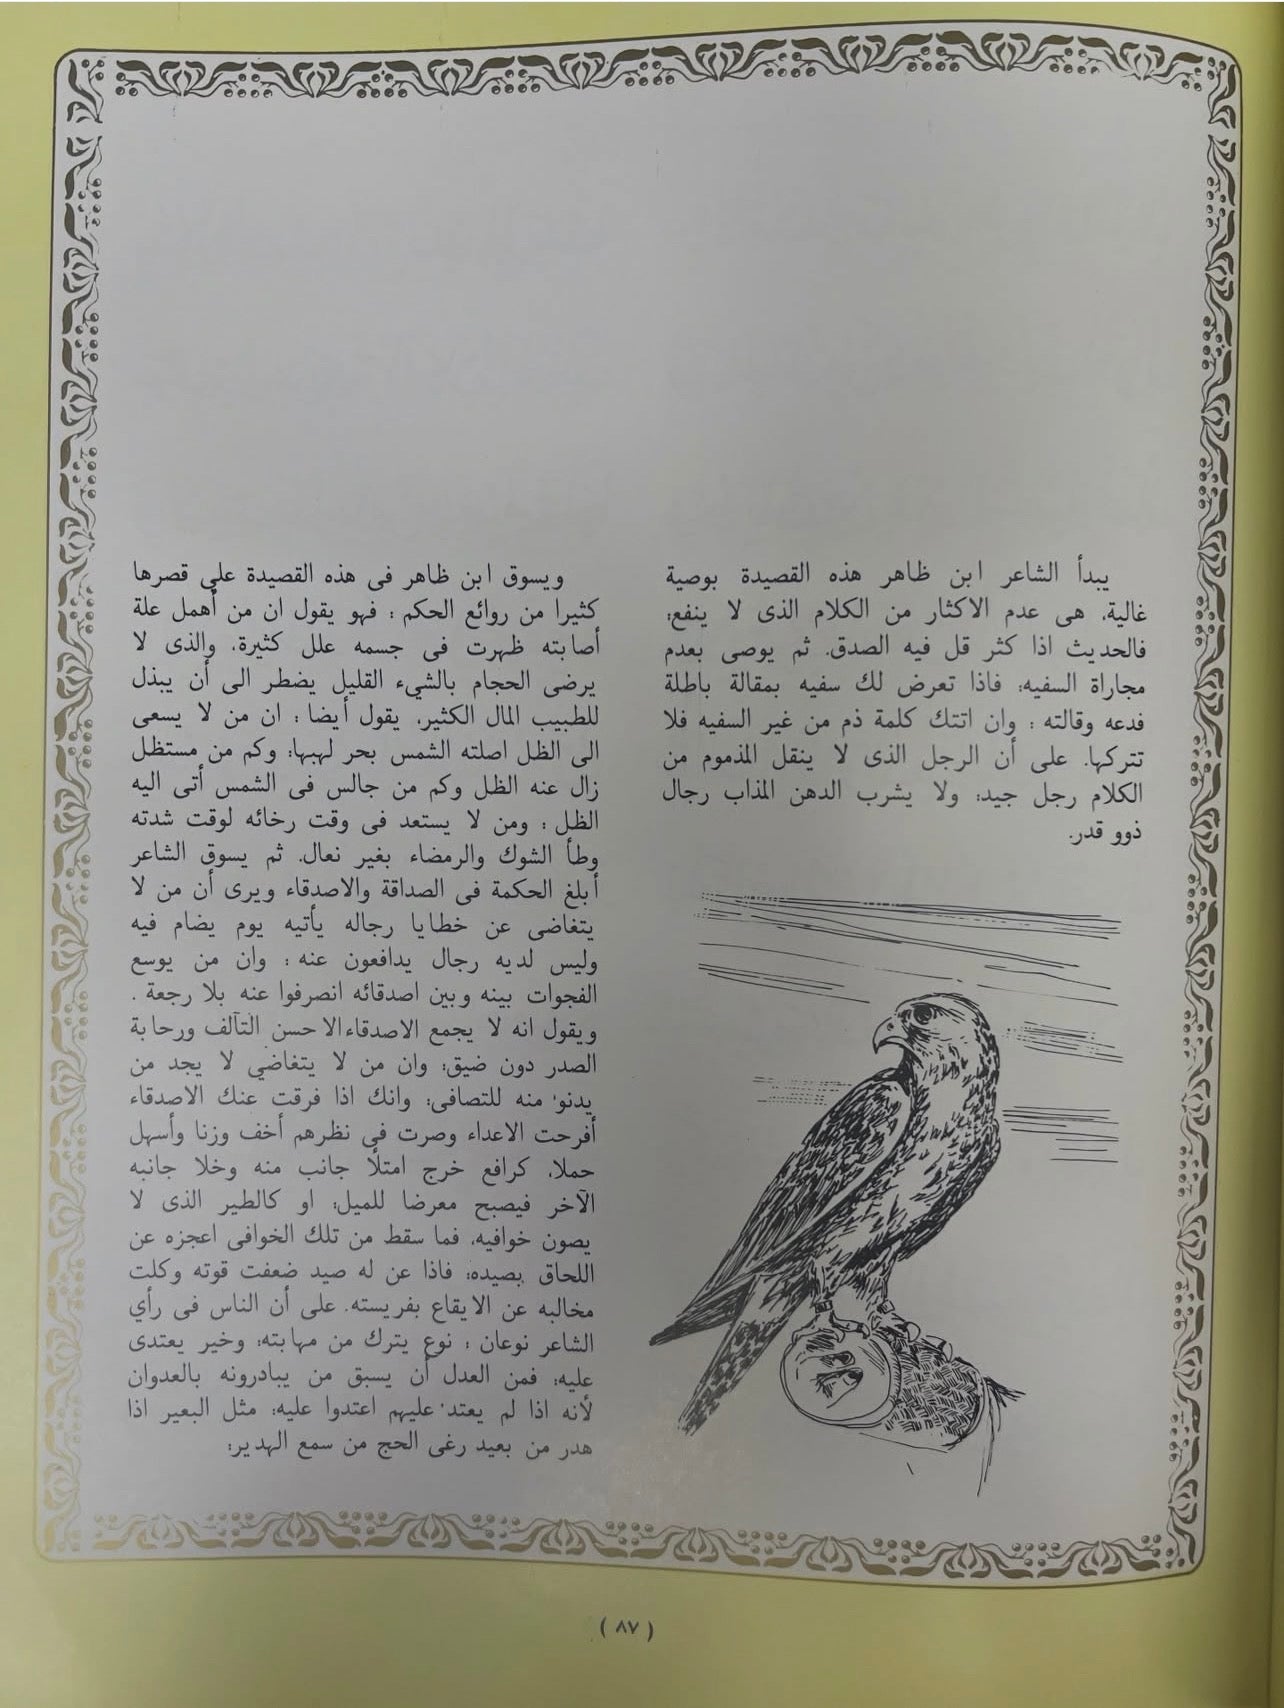 يبدأ الشاعر ابن ظاهر هذه القصيدة بوصية
غالية، هى عدم الاكثار من الكلام الذى لا ينفع؛
فالحديث اذا كثر قل فيه الصدق. ثم يوصى بعدم
مجاراة السفيه؛ فاذا تعرض لك سفيه بمقالة باطلة
فدعه وقالته ؛ وان اتتك كلمة ذم من غير السفيه فلا
تتركها. على أن الرجل الذى لا ينقل المذموم من
الكلام رجل جيد؛ ولا يشرب الدهن المذاب رجال
ذوو قدر.
ويسوق ابن ظاهر فى هذه القصيدة على قصرها
كثيرا من روائع الحكم ؛ فهو يقول ان من أهمل علة
أصابته ظهرت فى جسمه علل كثيرة، والذى لا
يرضى الحجام بالشيء القليل يضطر الى أن يبذل
للطبيب المال الكثير، يقول أيضا ؛ ان من لا يسعى
الى الظل اصلته الشمس بحر لهبها؛ وكم من مستظل
زال عنه الظل وكم من جالس فى الشمس أتى اليه
الظل ؛ ومن لا يستعد فى وقت رخائه لوقت شدته
وطأ الشوك والرمضاء بغير نعال. ثم يسوق الشاعر
أبلغ الحكمة فى الصداقة والاصدقاء ويرى أن من لا
يتغاضى عن خطايا رجاله يأتيه يوم يضام فيه
وليس لديه رجال يدافعون عنه ؛ وان من يوسع
الفجوات بينه وبين اصدقائه انصرفوا عنه بلا رجعة .
ويقول انه لا يجمع الاصدقاء الا حسن التآلف ورحابة
الصدر دون ضيق؛ وان من لا يتغاضي لا يجد من
يدنو منه للتصافى؛ وانك اذا فرقت عنك الاصدقاء
أفرحت الاعداء وصرت فى نظرهم أخف وزنا وأسهل
حملا، كرافع خرج امتلأ جانب منه وخلا جانبه
الآخر فيصبح معرضا للميل؛ او كالطير الذى لا
يصون خوافيه، فما سقط من تلك الخوافى اعجزه عن
اللحاق بصيده؛ فاذا عن له صيد ضعفت قوته وكلت
مخالبه عن الايقاع بفريسته. على أن الناس فى رأي
الشاعر نوعان ؛ نوع يترك من مهابته؛ وخير يعتدى
عليه؛ فمن العدل أن يسبق من يبادرونه بالعدوان
لأنه اذا لم يعتد عليهم اعتدوا عليه؛ مثل البعير اذا
هدر من بعيد رغى الحج من سمع الهدير؛
( ٨٧ )